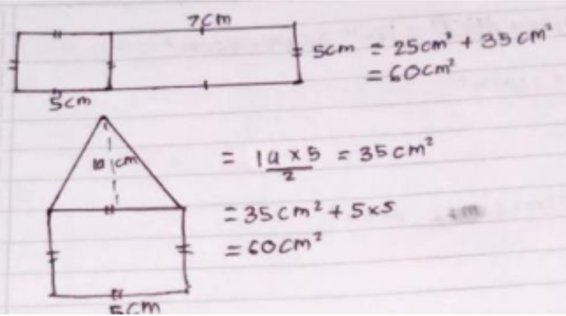 7cm
5cm = 25cm² + 35cm²
= 60cm²
5cm
cm
= 14 x 5 / 2 = 35cm²
= 35cm² + 5x5
= 60cm²
5cm